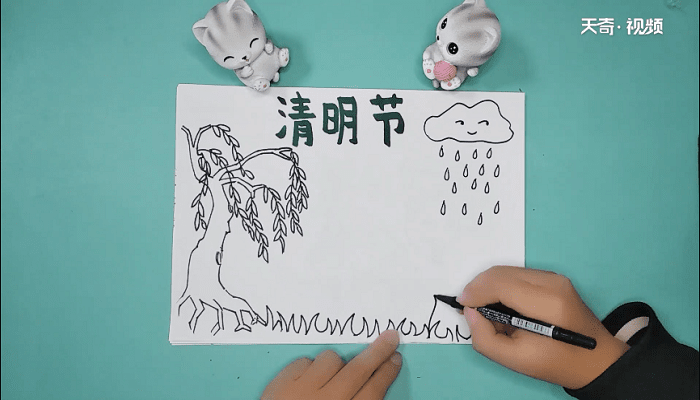 天奇·视频
清明节